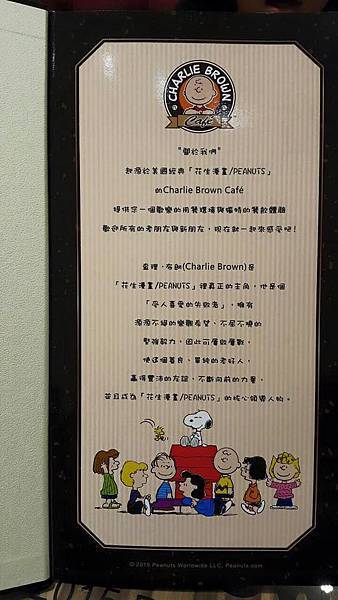 CHARLIE BROWN
Café
"關於我們"
起源於美國經典「花生漫畫/PEANUTS」
的Charlie Brown Café
提供您一個歡樂的用餐環境與獨特的餐飲體驗
歡迎所有的老朋友與新朋友，現在就一起來感受吧!
查理·布朗(Charlie Brown)是
「花生漫畫/PEANUTS」裡真正的主角，他是個
「受人喜愛的失敗者」，擁有
源源不絕的樂觀希望、不屈不撓的
堅強毅力，因此可屢敗屢戰，
使這個善良、單純的老好人，
贏得豐沛的友誼、不斷向前的力量，
並且成為「花生漫畫/PEANUTS」的核心領導人物。
© 2015 Peanuts Worldwide LLC, Peanuts.com